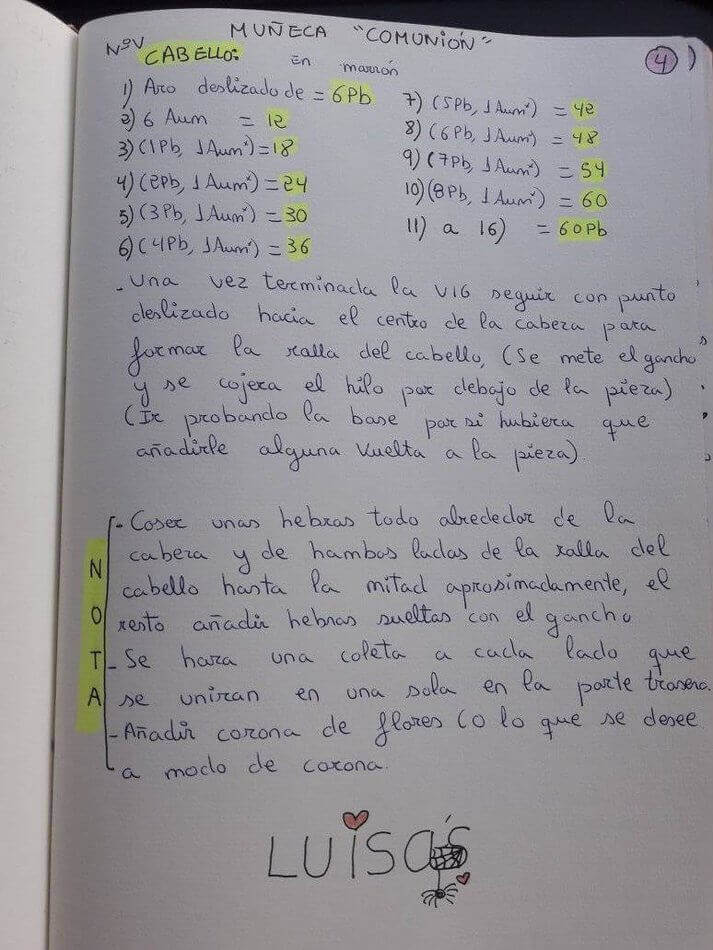 MUÑECA "COMUNIÓN"
Nov
4
CABELLO: En marrón
1) Aro deslizado de = 6Pb
2) 6 Aum = 12
3) (1Pb, 1Aumº) = 18
4) (2Pb, 1Aumº) = 24
5) (3Pb, 1Aumº) = 30
6) (4Pb, 1Aumº) = 36
7) (5Pb, 1Aumº) = 42
8) (6Pb, 1Aumº) = 48
9) (7Pb, 1Aumº) = 54
10) (8Pb, 1Aumº) = 60
11) a 16) = 60Pb
- Una vez terminada la V16 seguir con punto
deslizado hacia el centro de la cabeza para
formar la ralla del cabello, (Se mete el gancho
y se cojera el hilo por debajo de la pieza)
(Ir probando la base por si hubiera que
añadirle alguna vuelta a la pieza).
NOTA
- Coser unas hebras todo alrededor de la
cabeza y de hambos lados de la ralla del
cabello hasta la mitad aprosimadamente, el
resto añadir hebras sueltas con el gancho
- Se hara una coleta a cada lado que
se uniran en una sola en la parte trasera.
- Añadir corona de flores (o lo que se desee
a modo de corona.
LUISA'S